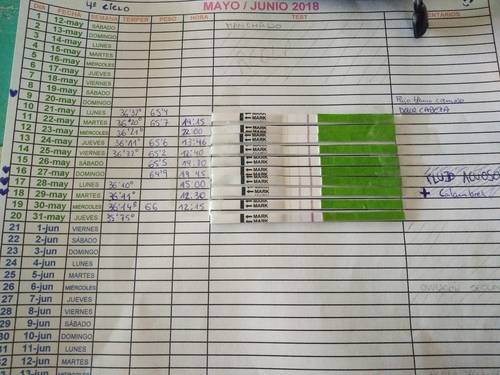 4º ciclo
MAYO / JUNIO 2018
DIA FECHA SEMANA TEMPER PESO HORA TEST
1 12-may SÁBADO MANCHADO
2 13-may DOMINGO
3 14-may LUNES
4 15-may MARTES
5 16-may MIERCOLES
6 17-may JUEVES
7 18-may VIERNES
8 19-may SÁBADO
9 20-may DOMINGO
10 21-may LUNES 36'37º 65'4
11 22-may MARTES 36'20º 65'7 19:15 MARK
12 23-may MIERCOLES 36'21º 22:00 MARK
13 24-may JUEVES 65'6 17:46 MARK
14 25-may VIERNES 12:40 MARK
15 26-may SÁBADO 65'5 19:30 MARK
16 27-may DOMINGO 64'9 19:45 MARK FLUJO ACUOSO
17 28-may LUNES 36'10º 15:00 MARK
18 29-may MARTES 12:30 MARK
19 30-may MIERCOLES 36'14º 66 12:15 MARK
20 31-may JUEVES 35'75º MARK
21 1-jun VIERNES
22 2-jun SÁBADO
23 3-jun DOMINGO
24 4-jun LUNES
25 5-jun MARTES
26 6-jun MIERCOLES
27 7-jun JUEVES
28 8-jun VIERNES
29 9-jun SÁBADO
30 10-jun DOMINGO
31 11-jun LUNES
32 12-jun MARTES
13-jun MIERCOLES